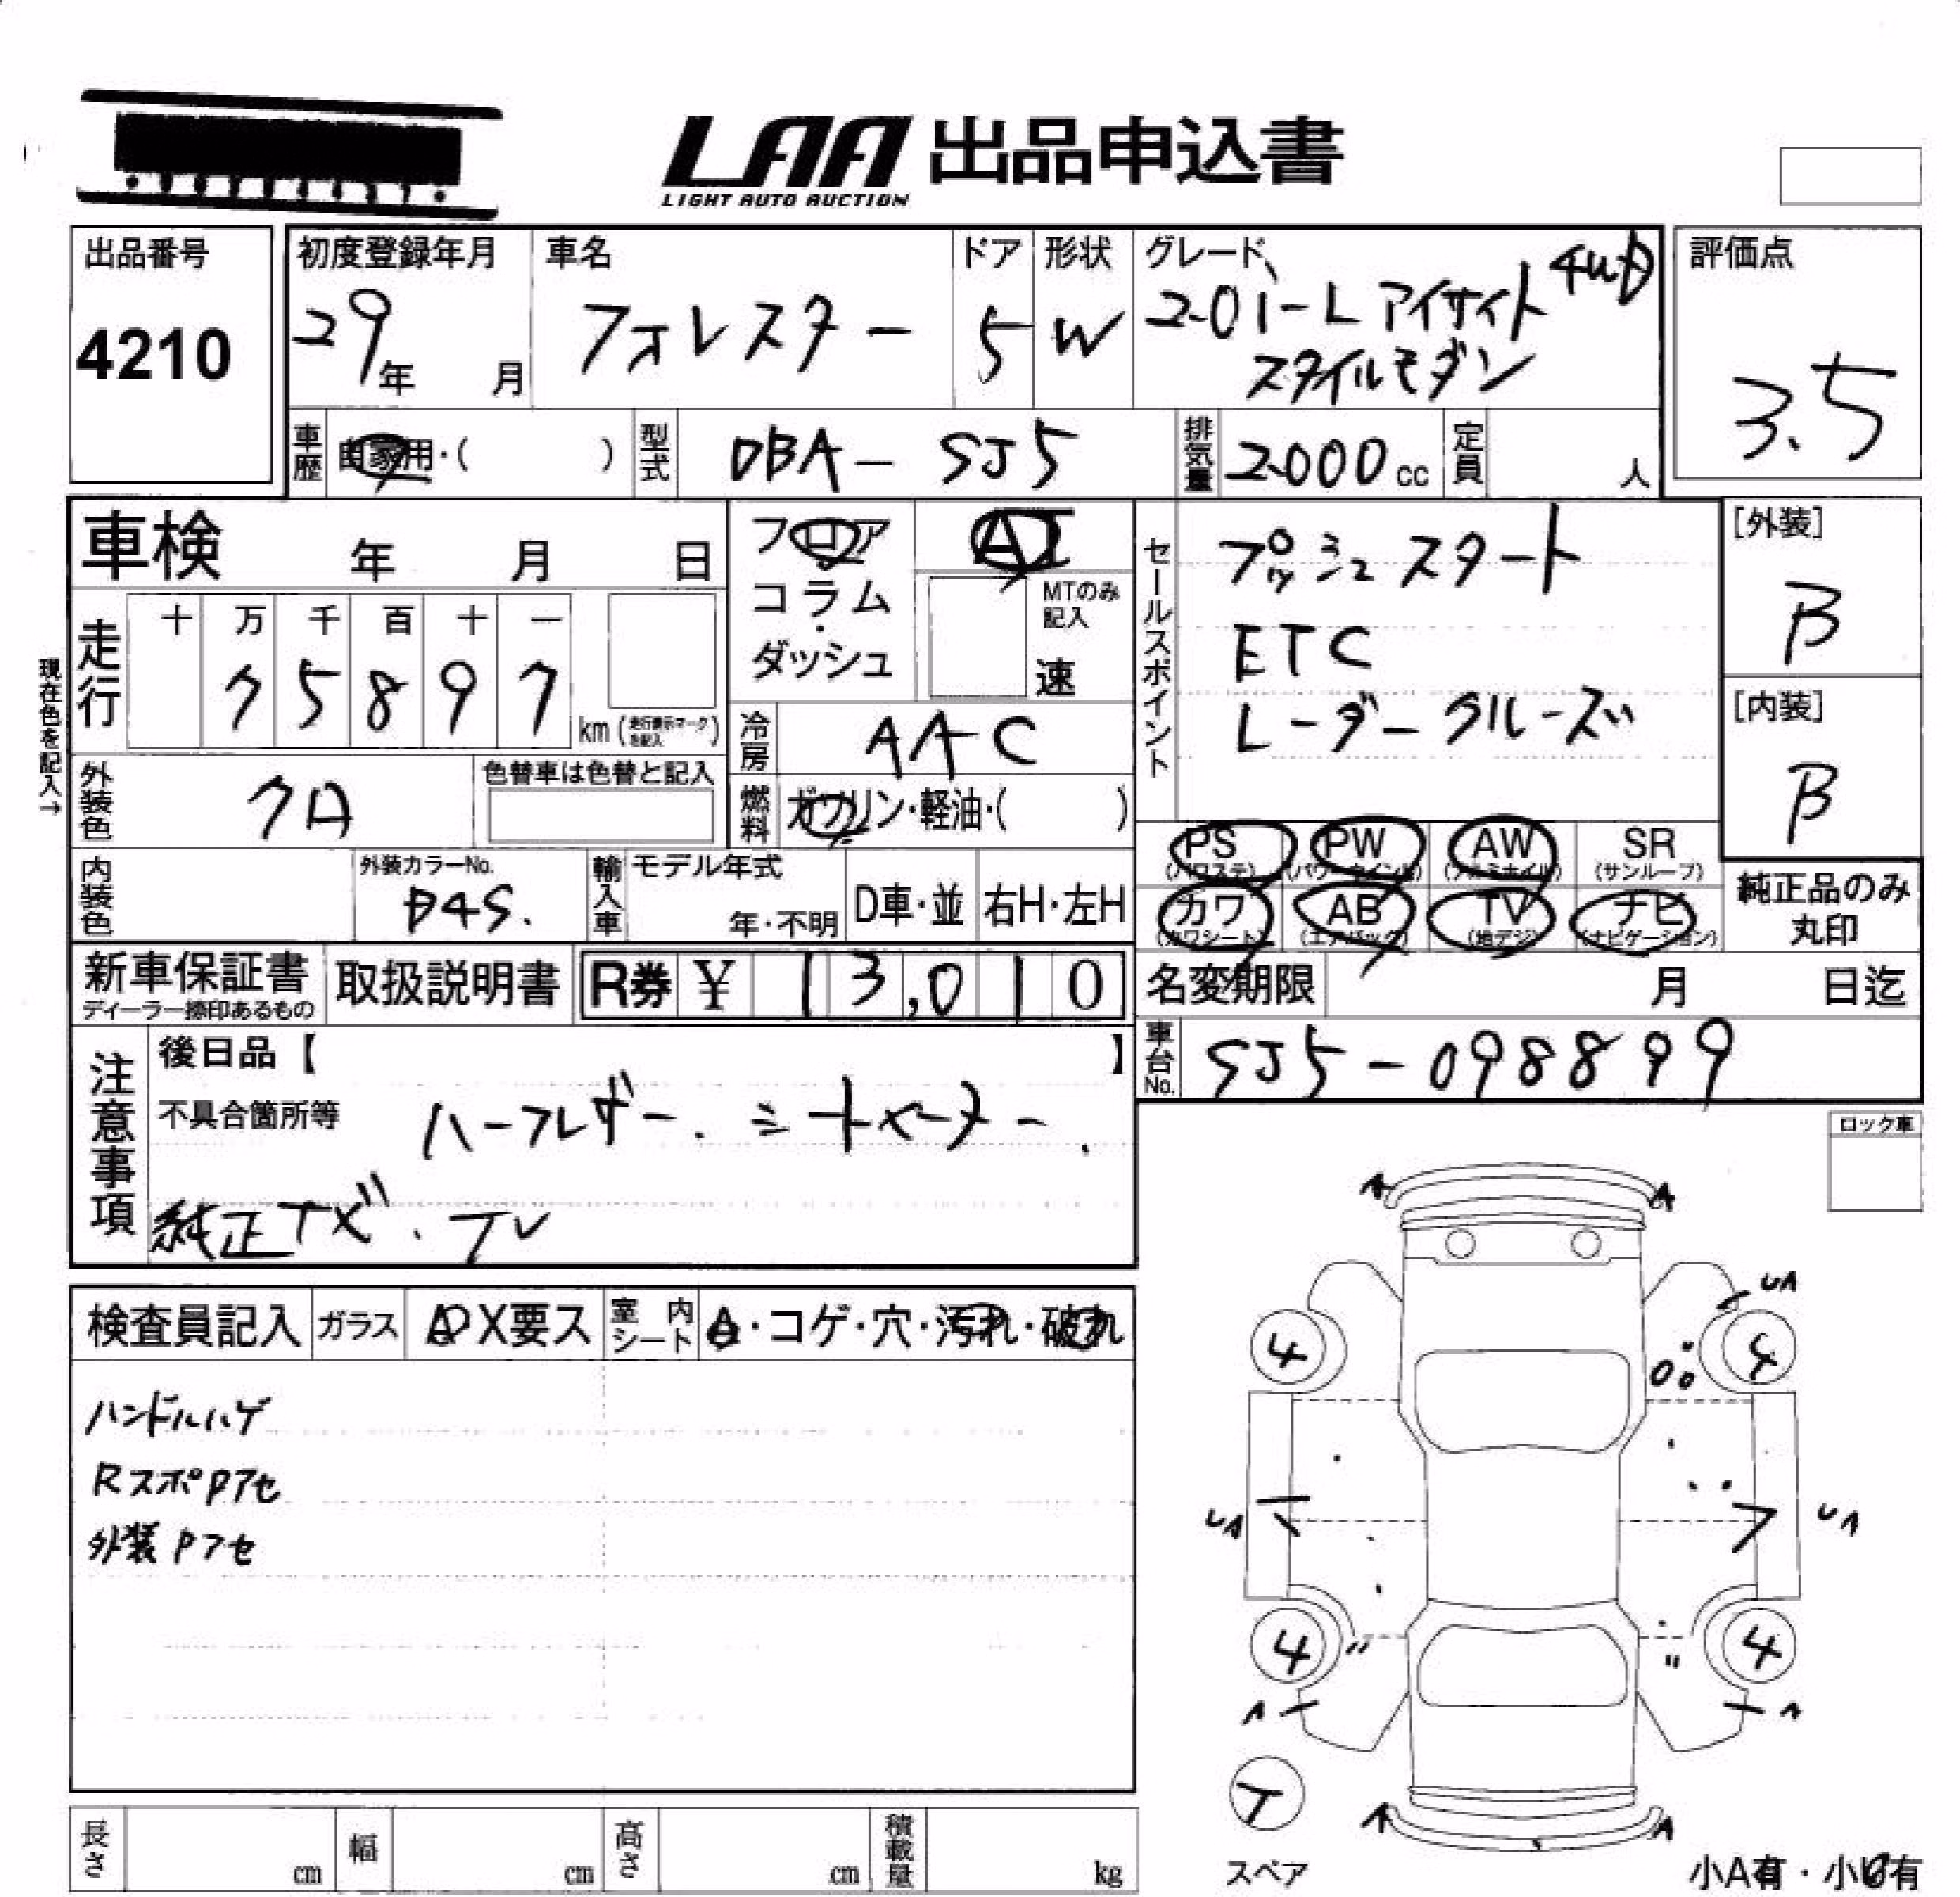 LAA 出品申込書
LIGHT AUTO AUCTION
出品番号
4210
初度登録年月
29年 月
車名
フォレスター
ドア
5
形状
W
グレード
2.0i-L アイサイト 4WD
スタイルモダン
評価点
3.5
車歴 自家用・( )
型式 DBA-SJ5
排気量 2000cc
定員 人
車検 年 月 日
フロア
コラム・
ダッシュ
AT
MTのみ記入
速
セールスポイント
プッシュスタート
ETC
レーダークルーズ
[外装]
B
[内装]
B
現在色を記入→
走行
十 万 千 百 十 一
7 5 8 9 7
km(走行表示マークを記入)
冷房 AAC
外装色 クロ
色替車は色替と記入
燃料 ガソリン・軽油・( )
PS (パワステ) PW (パワーウインド) AW (アルミホイル) SR (サンルーフ)
カワ (カワシート) AB (エアバック) TV (地デジ) ナビ (ナビゲーション)
純正品のみ
丸印
内装色
外装カラーNo.
D4S.
輸入車
モデル年式
年・不明
D車・並
右H・左H
新車保証書
ディーラー捺印あるもの
取扱説明書
R券 ¥ 13,010
名変期限 月 日迄
車台No. SJ5-098899
注意事項
後日品【 】
不具合箇所等
ハーフレザー. シートヒーター.
純正ナビ. TV
ロック車
検査員記入
ガラス
A P X要ス
室内シート
・コゲ・穴・汚れ・破れ
ハンドルハゲ
RスポPアセ
外装Pアセ
A A
UA
4 4
UA UA
4 4
〃 〃
A A
T
スペア
A A
長さ cm 幅 cm 高さ cm 積載量 kg
小A有・小U有